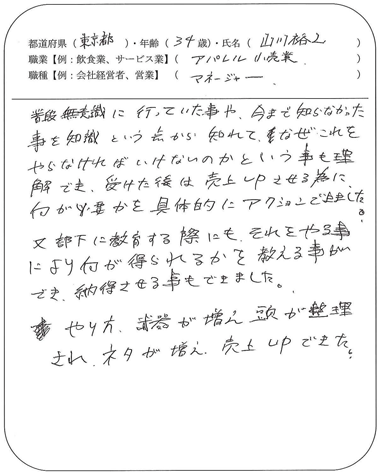 都道府県（東京都）・年齢（34歳）・氏名（山川裕之）
職業【例：飲食業、サービス業】（アパレル小売業）
職種【例：会社経営者、営業】（マネージャー）
普段無意識に行っていた事や、今まで知らなかった
事を知識という点から知れて、なぜこれを
やらなければいけないのかという事も理
解でき、受けた後は売上UPさせる為に
何が必要かを具体的にアクションできました。
又部下に教育する際にも、それをやる事
により何が得られるかを教える事が
でき、納得させる事もできました。
やり方、武器が増え頭が整理
され、ネタが増え、売上UPできた。